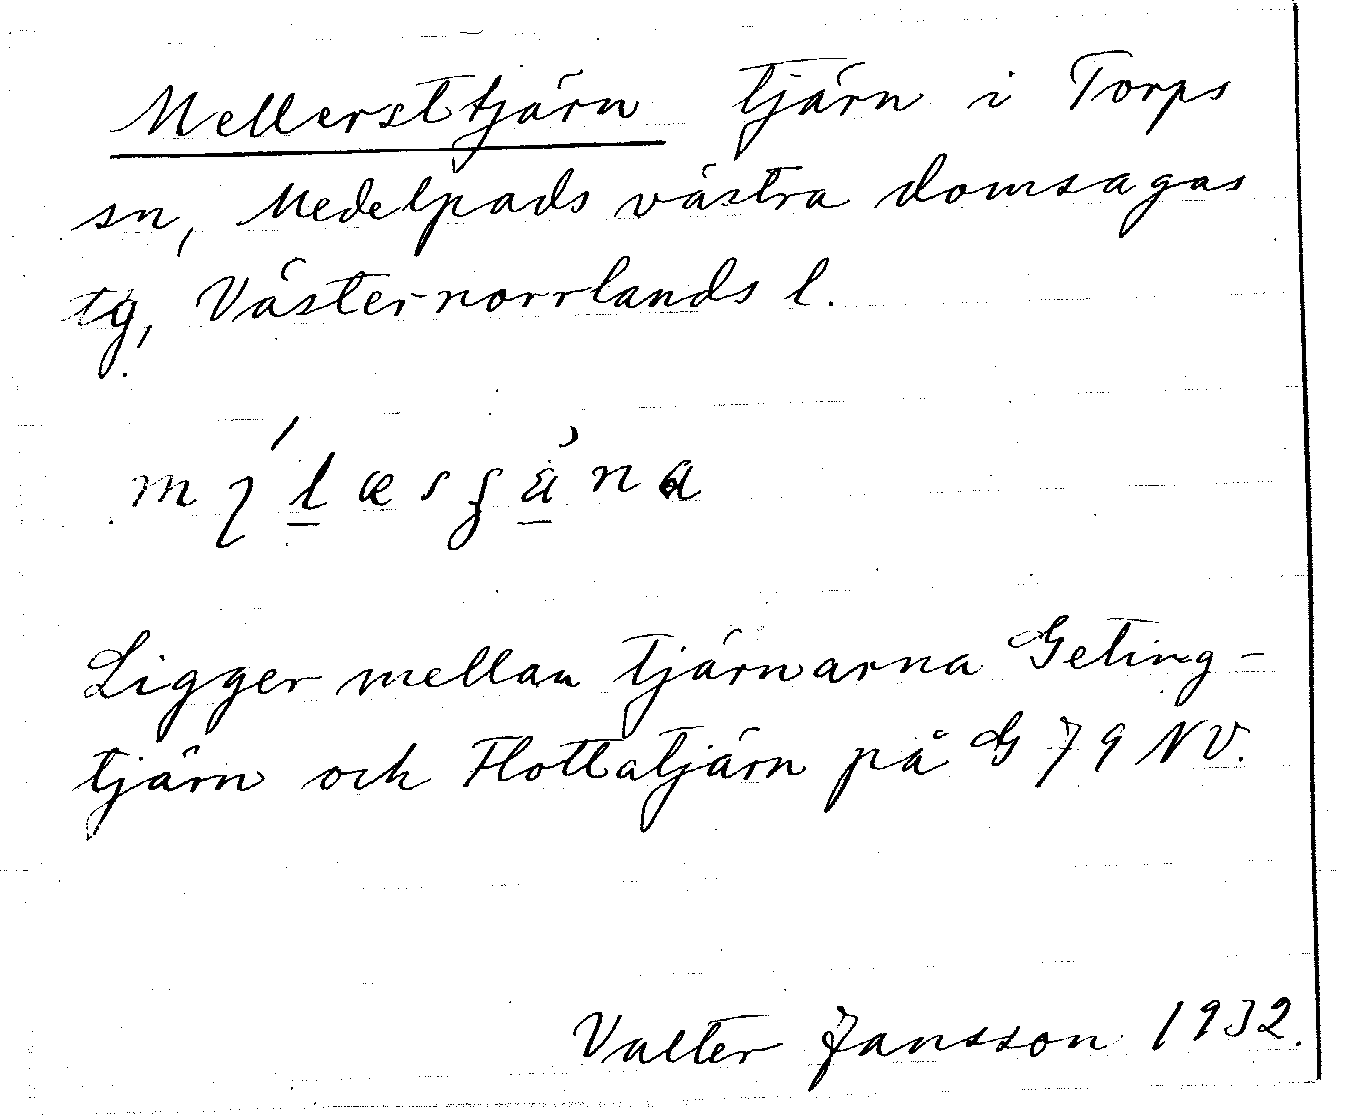 Mellersttjärn tjärn i Torps
sn, Medelpads västra domsagas
tg, Västernorrlands l.
Ligger mellan tjärnarna Geting-
tjärn och Flottatjärn på G 79 NV.
Valter Jansson 1932.